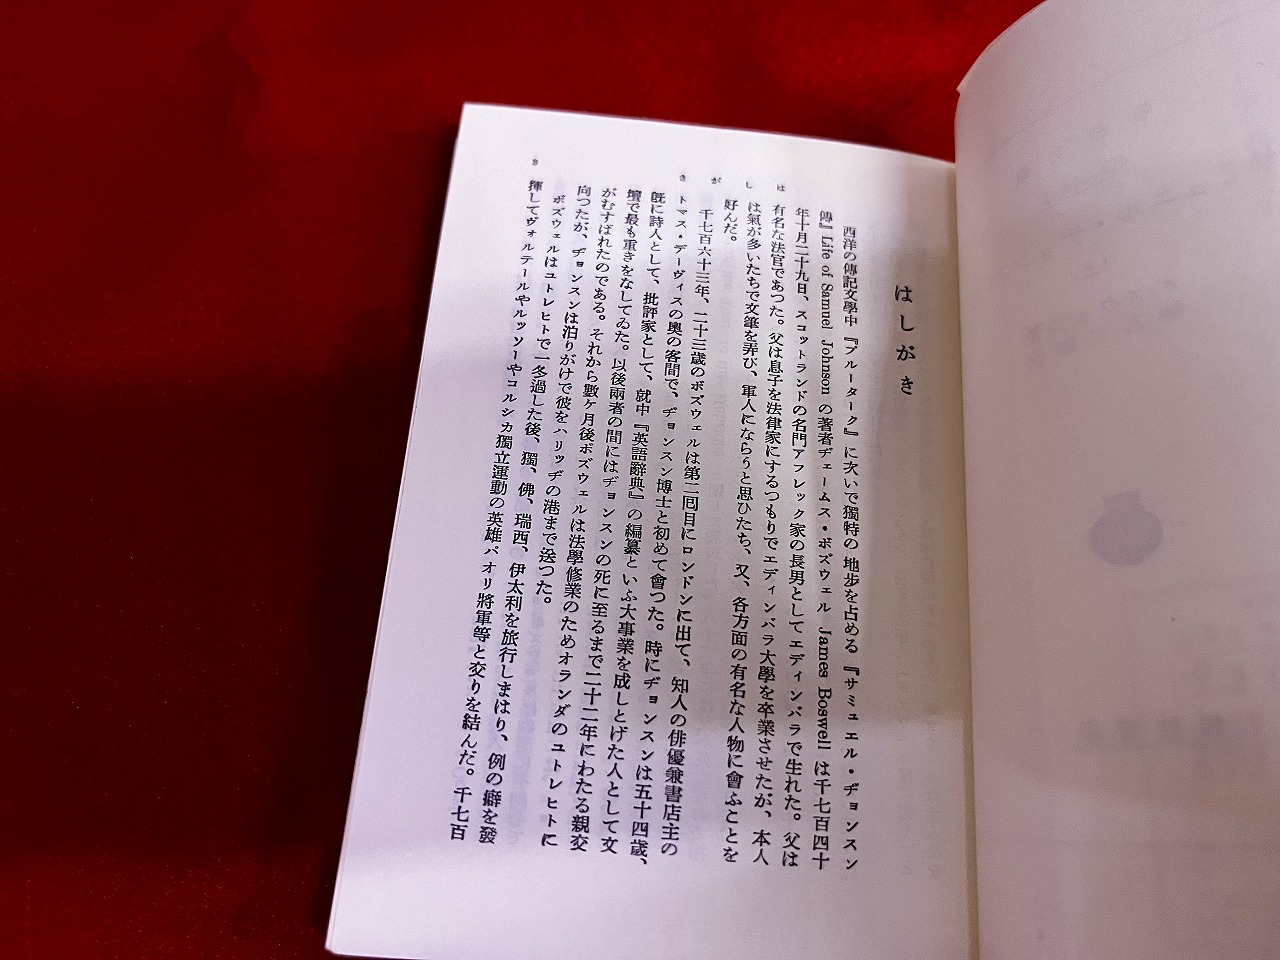 はしがき
西洋の傳記文學中『プルーターク』に次いで獨特の地歩を占める『サミュエル・ヂョンスン
傳』Life of Samuel Johnson の著者ヂェームス・ボズウェル James Boswell は千七百四十
年十月二十九日、スコットランドの名門アフレック家の長男としてエディンバラで生れた。父は
有名な法官であつた。父は息子を法律家にするつもりでエディンバラ大學を卒業させたが、本人
は氣が多いたちで文筆を弄び、軍人にならうと思ひたち、又、各方面の有名な人物に會ふことを
好んだ。
千七百六十三年、二十三歳のボズウェルは第二囘目にロンドンに出て、知人の俳優兼書店主の
トマス・デーヴィスの奥の客間で、ヂョンスン博士と初めて會つた。時にヂョンスンは五十四歳、
既に詩人として、批評家として、就中『英語辭典』の編纂といふ大事業を成しとげた人として文
壇で最も重きをなしてゐた。以後兩者の間にはヂョンスンの死に至るまで二十二年にわたる親交
がむすばれたのである。それから數ケ月後ボズウェルは法學修業のためオランダのユトレヒトに
向つたが、ヂョンスンは泊りがけで彼をハリッヂの港まで送つた。
ボズウェルはユトレヒトで一冬過した後、獨、佛、瑞西、伊太利を旅行しまはり、例の癖を發
揮してヴォルテールやルッソーやコルシカ獨立運動の英雄パオリ將軍等と交りを結んだ。千七百
はしがき